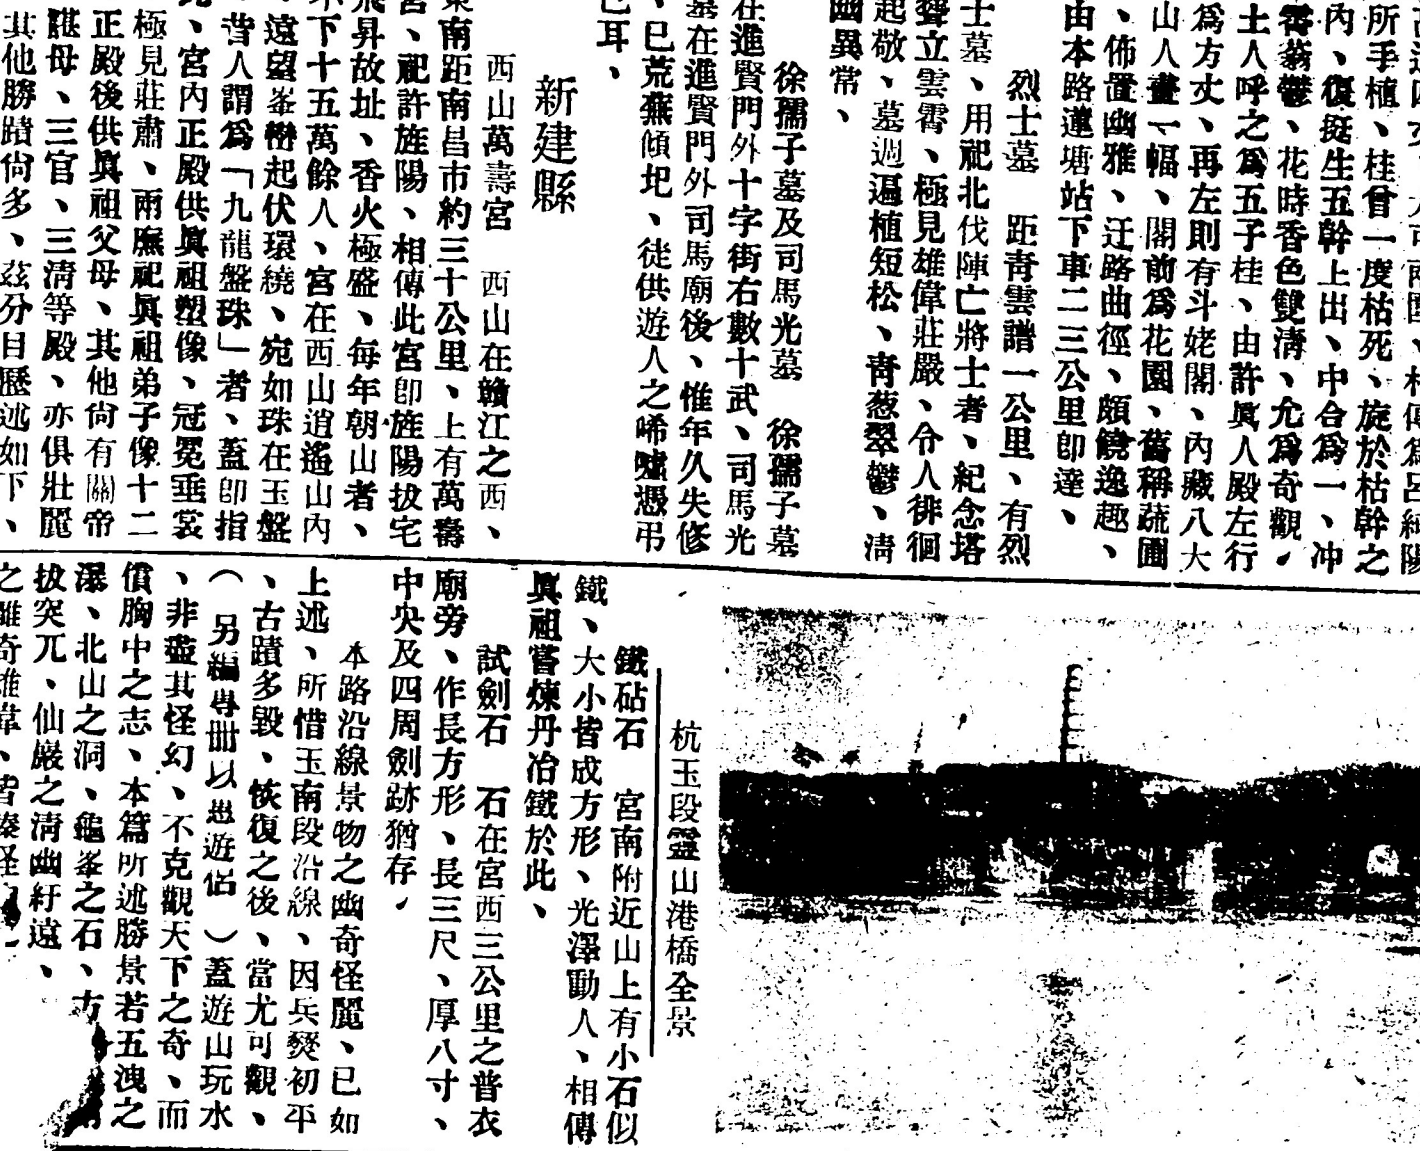 所手植、桂曾一度枯死、旋於枯幹之
內、復挺生五幹上出、中合爲一、冲
霄蓊鬱、花時香色雙清、允爲奇觀、
土人呼之爲五子桂、由許眞人殿左行
爲方丈、再左則有斗姥閣、內藏八大
山人畫一幅、閣前爲花園、舊稱蔬圃
、佈置幽雅、迂路曲徑、頗饒逸趣、
由本路蓮塘站下車二三公里卽達、
烈士墓　距靑雲譜一公里、有烈
士墓、用祀北伐陣亡將士者、紀念塔
聳立雲霄、極見雄偉莊嚴、令人徘徊
起敬、墓週遍植短松、靑葱翠鬱、清
幽異常、
徐孺子墓及司馬光墓　徐孺子墓
在進賢門外十字街右數十武、司馬光
墓在進賢門外司馬廟後、惟年久失修
、已荒蕪傾圯、徒供遊人之唏噓憑弔
已耳、
新建縣
西山萬壽宮　西山在贛江之西、
東南距南昌市約三十公里、上有萬壽
宮、祀許旌陽、相傳此宮卽旌陽拔宅
飛昇故址、香火極盛、每年朝山者、
不下十五萬餘人、宮在西山逍遙山內
、遠望峯巒起伏環繞、宛如珠在玉盤
、昔人謂爲「九龍盤珠」者、蓋卽指
此、宮內正殿供眞祖塑像、冠冕垂裳
極見莊肅、兩廡祀眞祖弟子像十二
正殿後供眞祖父母、其他尙有關帝
諶母、三官、三清等殿、亦俱壯麗
其他勝蹟尙多、茲分目歷述如下、
杭玉段靈山港橋全景
鐵砧石　宮南附近山上有小石似
鐵、大小皆成方形、光澤動人、相傳
眞祖嘗煉丹冶鐵於此、
試劍石　石在宮西三公里之普衣
廟旁、作長方形、長三尺、厚八寸、
中央及四周劍跡猶存、
本路沿線景物之幽奇怪麗、已如
上述、所惜玉南段沿線、因兵燹初平
、古蹟多毀、恢復之後、當尤可觀、
（另編專冊以惠遊侶）蓋遊山玩水
、非盡其怪幻、不克觀天下之奇、而
償胸中之志、本篇所述勝景若五洩之
瀑、北山之洞、龜峯之石、方
拔突兀、仙巖之清幽紆遠、
之離奇雄偉、皆